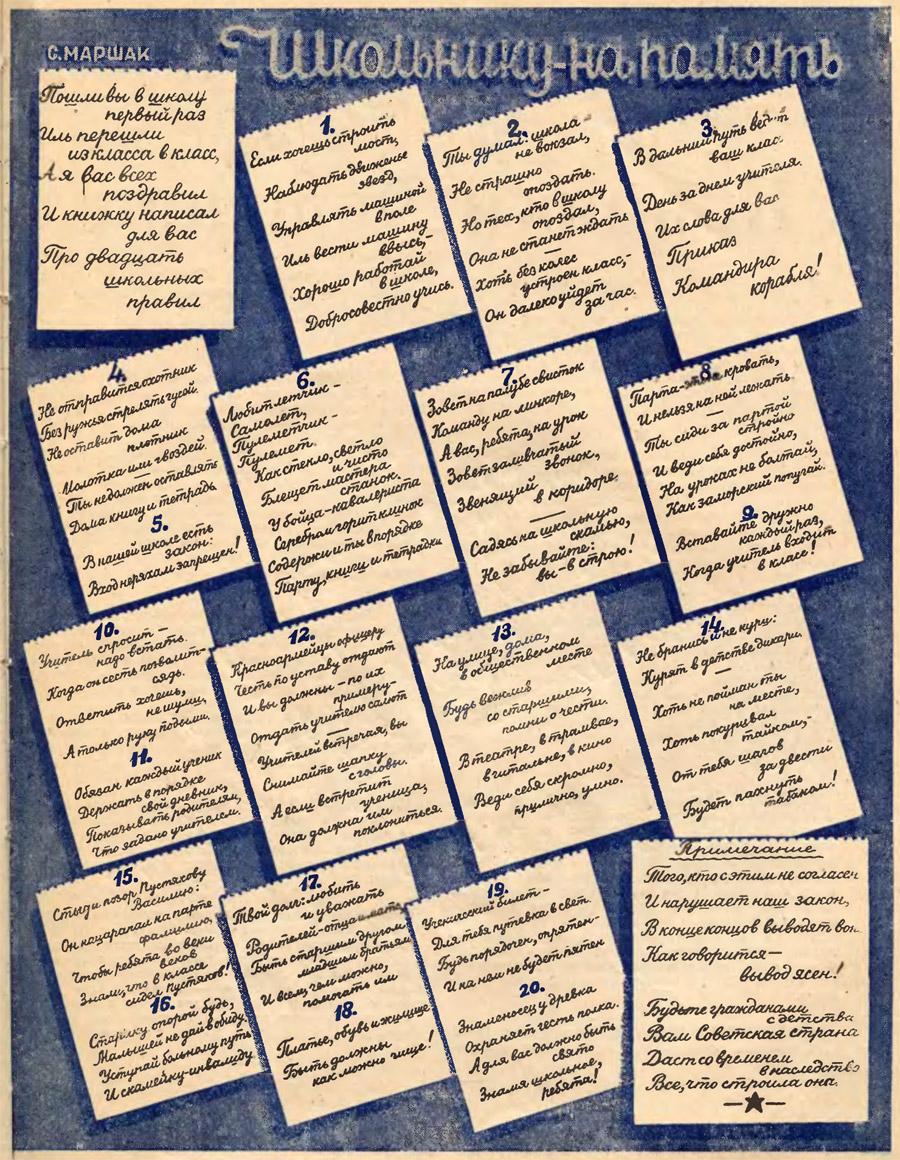 С. МАРШАК
Школьнику-на память
Пошли вы в школу
первый раз
Иль перешли
из класса в класс,
А я вас всех
поздравил
И книжку написал
для вас
Про двадцать
школьных
правил
1.
Если хочешь строить
мост,
Наблюдать движенье
звезд,
Управлять машиной
в поле
Иль вести машину
ввысь,-
Хорошо работай
в школе,
Добросовестно учись.
2.
Ты думал: школа -
не вокзал,
Не страшно
опоздать.
Но тех, кто в школу
опоздал,
Она не станет ждать
Хоть без колес
устроен класс,-
Он далеко уйдет
за час.
3.
В дальний путь
ваш
День за днем учителя.
Их слова для вас
Приказ
Командира
корабля!
4.
Не отправится охотник
Без ружья стрелять гусей.
Не оставит дома
плотник
Молотка или гвоздей.
Ты не должен оставлять
Дома книгу и тетрадь
5.
В нашей школе есть
закон:
Вход неряхам запрещен!
6.
Любит летчик -
Самолет,
Пулеметчик -
Пулемет.
Как стекло, светло
и чисто
Блещет мастера
станок.
У бойца-кавалериста
Серебром горит клинок
Содержи и ты в порядке
Парту, книги и тетрадки
7.
Зовет на палубе свисток
Команду на линкоре,
А вас, ребята, на урок
Зовет заливчатый
звонок,
Звенящий
в коридоре.
Садясь на школьную
скамью,
Не забывайте:
вы-в строю!
8.
Парта- кровать,
И нельзя на ней лежать.
Ты сиди за партой
стройно
И веди себя достойно,
На уроках не болтай,
Как заморский попугай.
9.
Вставайте дружно
каждый раз,
Когда учитель входит
в класс!
10.
Учитель спросит -
надо встать.
Когда он сесть позволит-
сядь.
Ответить хочешь,
не шуми,
А только руку подыми.
11.
Обязан каждый ученик
Держать в порядке
свой дневник,
Показывать родителям,
Что задано учителем.
12.
Красноармейцы офицеру
Честь по уставу отдают
И вы должны - по их
примеру-
Отдать учителю салют
Учителей встречая, вы
Снимайте шапку
с головы.
А если встретит
ученица,
Она должна им
поклониться.
13.
На улице, дома,
в общественном
месте
Будь вежлив
со старшими,
полни о чести.
В театре, в трамвае,
в читальне, в кино
Веди себя скромно,
прилично, умно.
14.
Не бранись и не кури:
Курят в детстве дикари.
Хоть не пойман ты
на месте,
Хоть покуривал
тайком,-
От тебя шагов
за двести
Будет пахнуть
табаком!
15.
Стыд и позор Пустякову
Василию:
Он нацарапал на парте
фамилию,
Чтобы ребята во веки
веков
Знали, что в классе
сидел Пустяков!
16.
Старику опорой будь,
Малышей не дай в обиду.
Уступай больному путь
И скамейку-инвалиду.
17.
Твой долг: любить
и уважать
Родителей-отца
Быть старшим другом
младшим братьям
И всем, чем можно,
помогать им
18.
Платье, обувь и жилище
Быть должны
как можно чище!
19.
Ученический билет-
Для тебя путевка в свет.
Будь порядочен, опрятен-
И на нем не будет пятен
20.
Знаменосец у древка
Охраняет честь полка.
А для вас должно быть
свято
Знамя школьное,
ребята!
Примечание
Того, кто с этим не согласен
И нарушает наш закон,
В конце концов выводят вон.
Как говорится-
вывод ясен!
Будьте гражданами
с детства
Вам Советская страна
Даст со временем
в наследство
Все, что строила она.